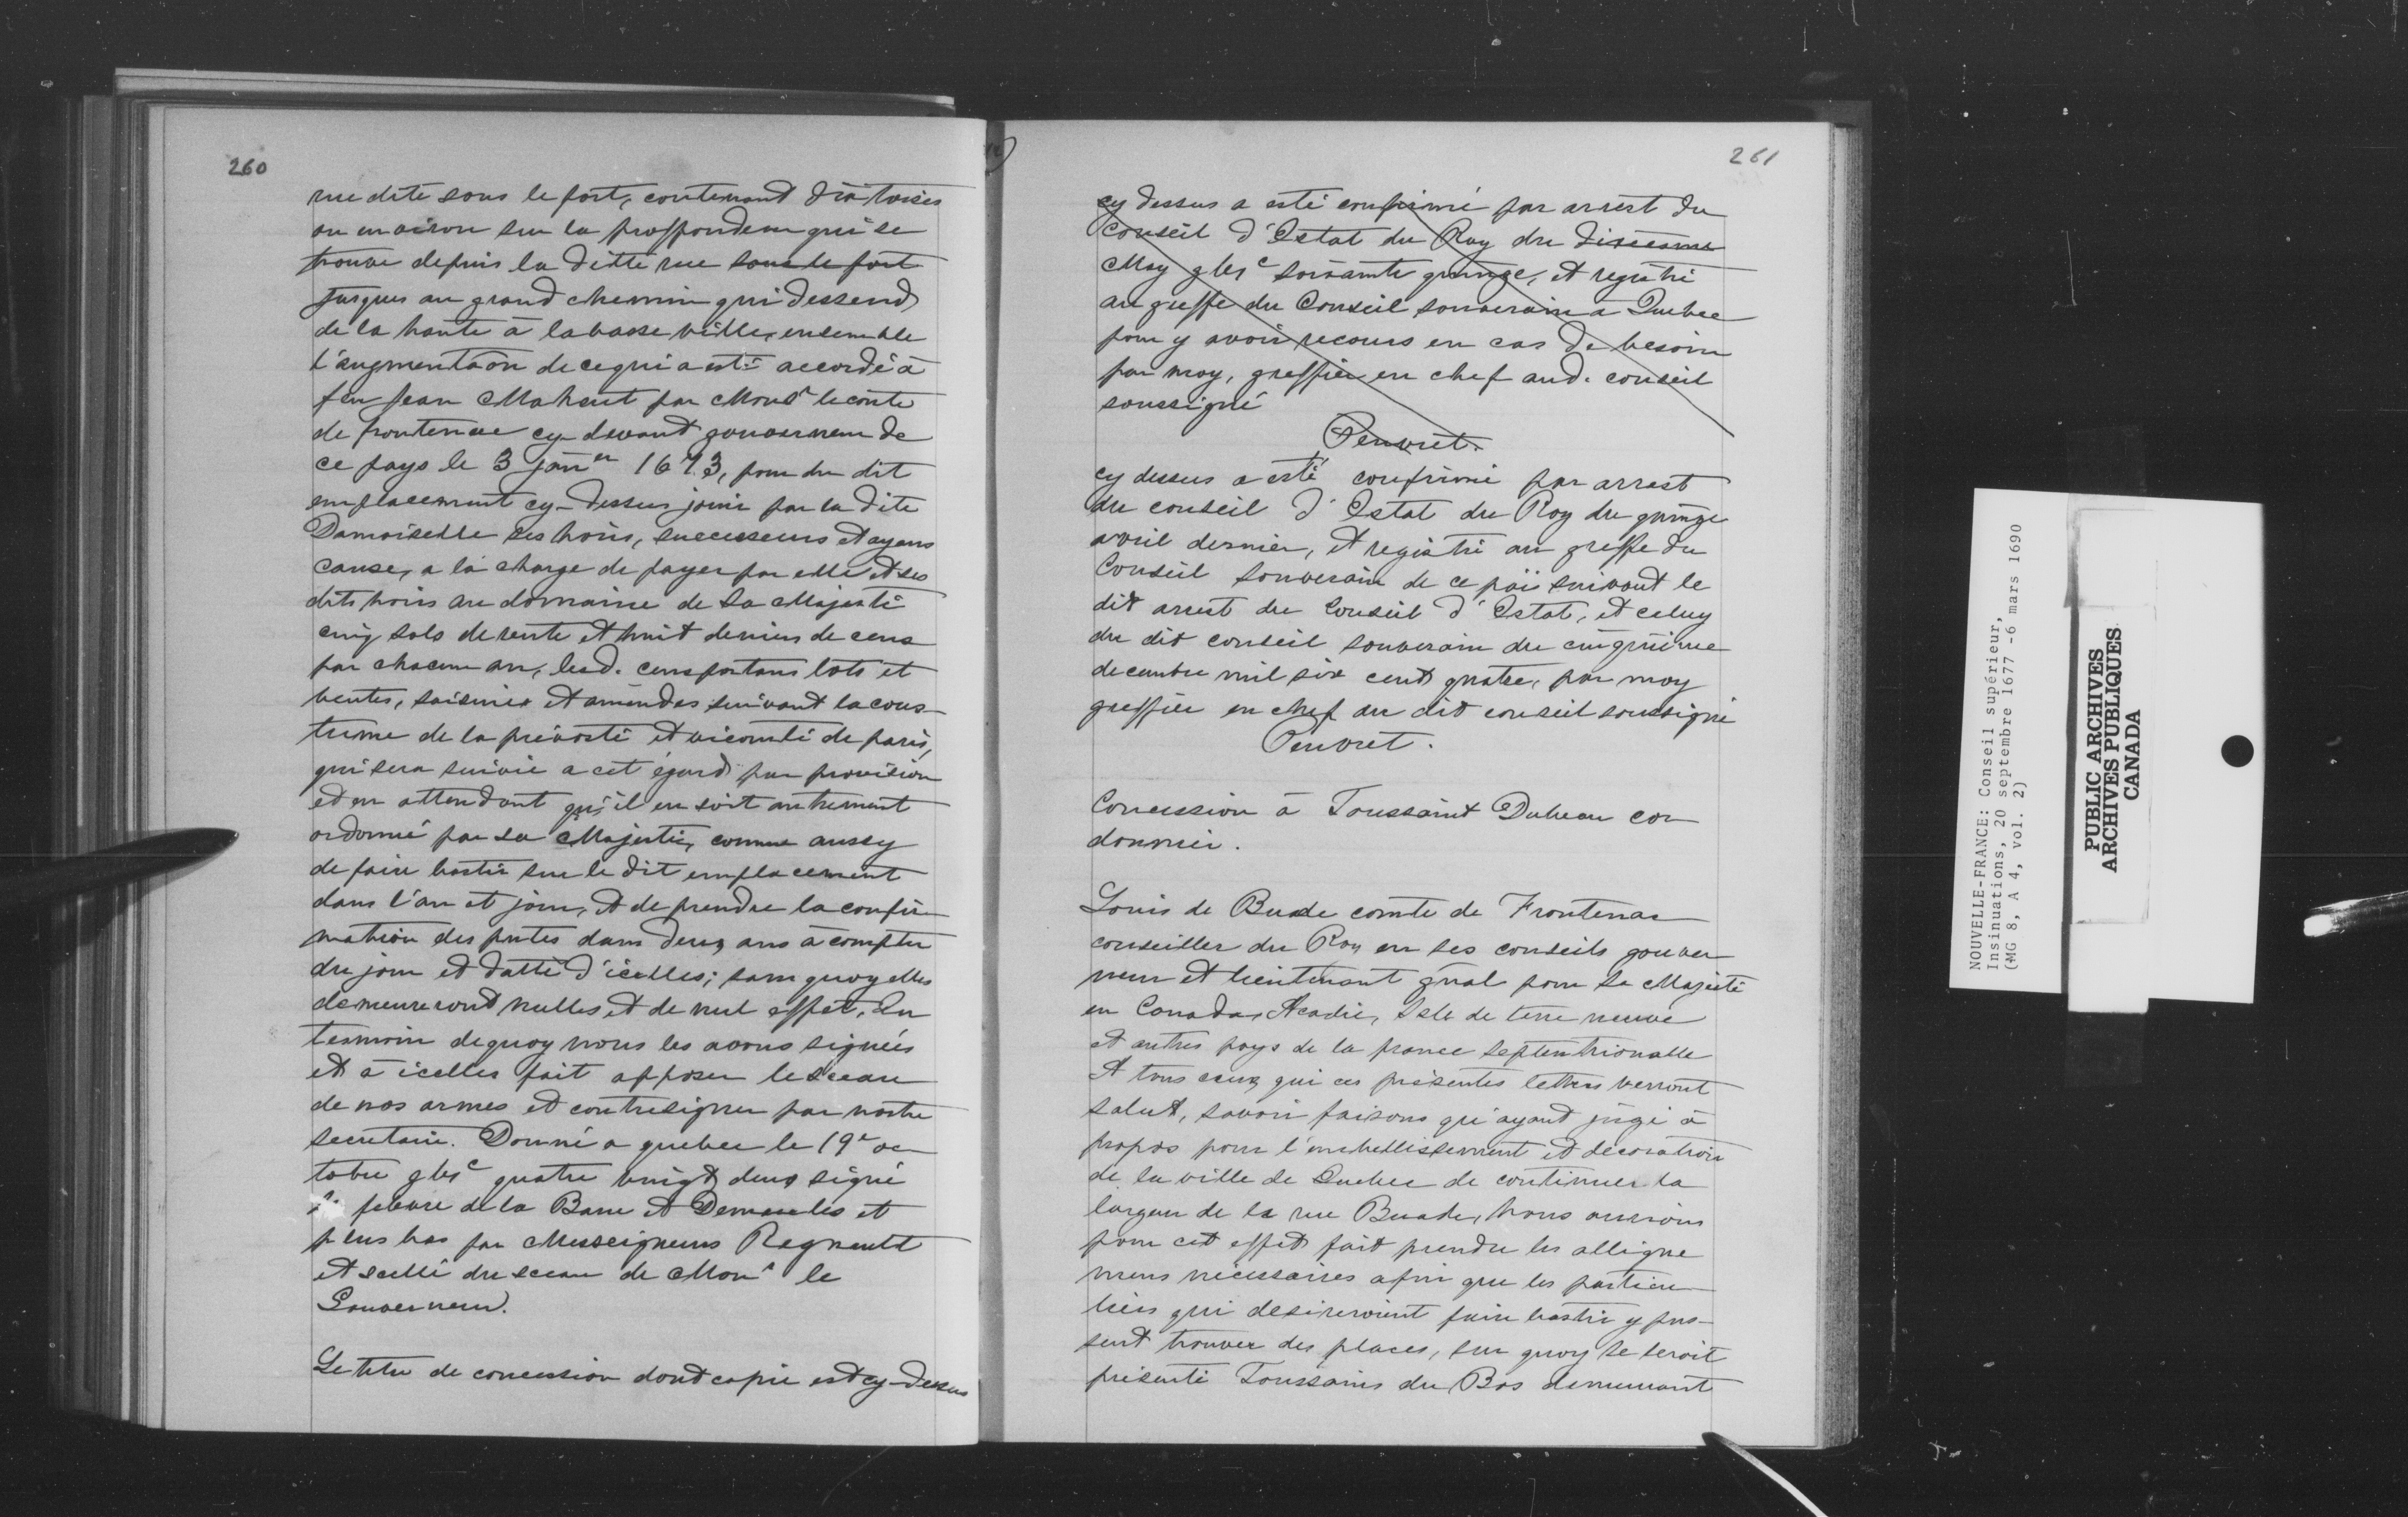 260
rue dite sous le fort, contenant dix toises
ou environ sur la proffondeur qui se
trouve depuis la ditte rue sous le fort
jusques au grand chemin qui dessend
de la haute à la basse ville, ensemble
l'augmentaõn de ce qui a esté accordé à
feu Jean Maheut par Monsr le conte
de frontenac cy-devant gouverneur de
ce pays le 3 janer 1673, pour du dit
emplacement cy-dessus jouir par la dite
Damoiselle ses hoirs, successeurs et ayans
cause, a la charge de payer par elle et ses
dits hoirs au domaine de sa Majesté
cinq sols de rente et huit deniers de cens
par chacun an, lesd. cens portans lots et
ventes, saisines et amendes suivant la cous-
tume de la prévosté et vicomté de paris,
qui sera suivie a cet égard par provision
et en attendant qu'il en soit autrement
ordonné par sa Majesté, comme aussy
de faire bastir sur le dit emplacement
dans l'an et jour, et de prendre la confir-
mation des pntes dans deux ans à compter
du jour et datte d'icelles; sans quoy elles
demeureront nulles et de nul effet. En
tesmoin de quoy nous les avons signées
et à icelles fait apposer le sceau
de nos armes et contresigner par nostre
secretaire. Donné a quebec le 19e oc-
tobre gbic quatre vingt deux signé
febvre de la Barre et Demeules et
plus bas par Messeigneurs Regnault
et scellé du sceau de Monr le
Gouverneur.
Le titre de concession dont copie est cy-dessus
261
cy dessus a esté confirmé par arrest du
Conseil d'Estat du Roy du dixiesme
May gbic soixante quinze, et registré
au greffe du Conseil souverain a Quebec
pour y avoir recours en cas de besoin
par moy, greffier en chef aud. conseil
soussigné
Peuvret.
cy dessus a esté confirmé par arrest
du conseil d'Estat du Roy du quinze
avril dernier, et registré au greffe du
Conseil souverain de ce païs suivant le
dit arrest du Conseil d'Estat, et celuy
du dit conseil souverain du cinquiéme
decembre mil six cent quatre, par moy
greffier en chef au dit conseil soussigné
Peuvret.
Concession à Toussaint Dubeau cor-
donnier.
Louis de Buade comte de Frontenac
conseiller du Roy en ses conseils gouver-
neur et lieutenant gnal pour sa Majesté
en Canada, Acadie, Isle de terre neuve
et autres pays de la france septentrionalle
A tous ceux qui ces présentes lettres verront
salut, savoir faisons qu'ayant jugé à
propos pour l'embellissement et decoration
de la ville de Quebec de continuer la
largeur de la rue Buade, nous aurions
pour cet effet fait prendre les alligne-
mens nécessaires afin que les particu-
liers qui desireroient faire bastir y pus-
sent trouver des places, sur quoy se seroit
présenté Toussains du Bos demeurant
NOUVELLE-FRANCE: Conseil supérieur,
Insinuations, 20 septembre 1677 -6 mars 1690
(MG 8, A 4, vol. 2)
PUBLIC ARCHIVES
ARCHIVES PUBLIQUES
CANADA